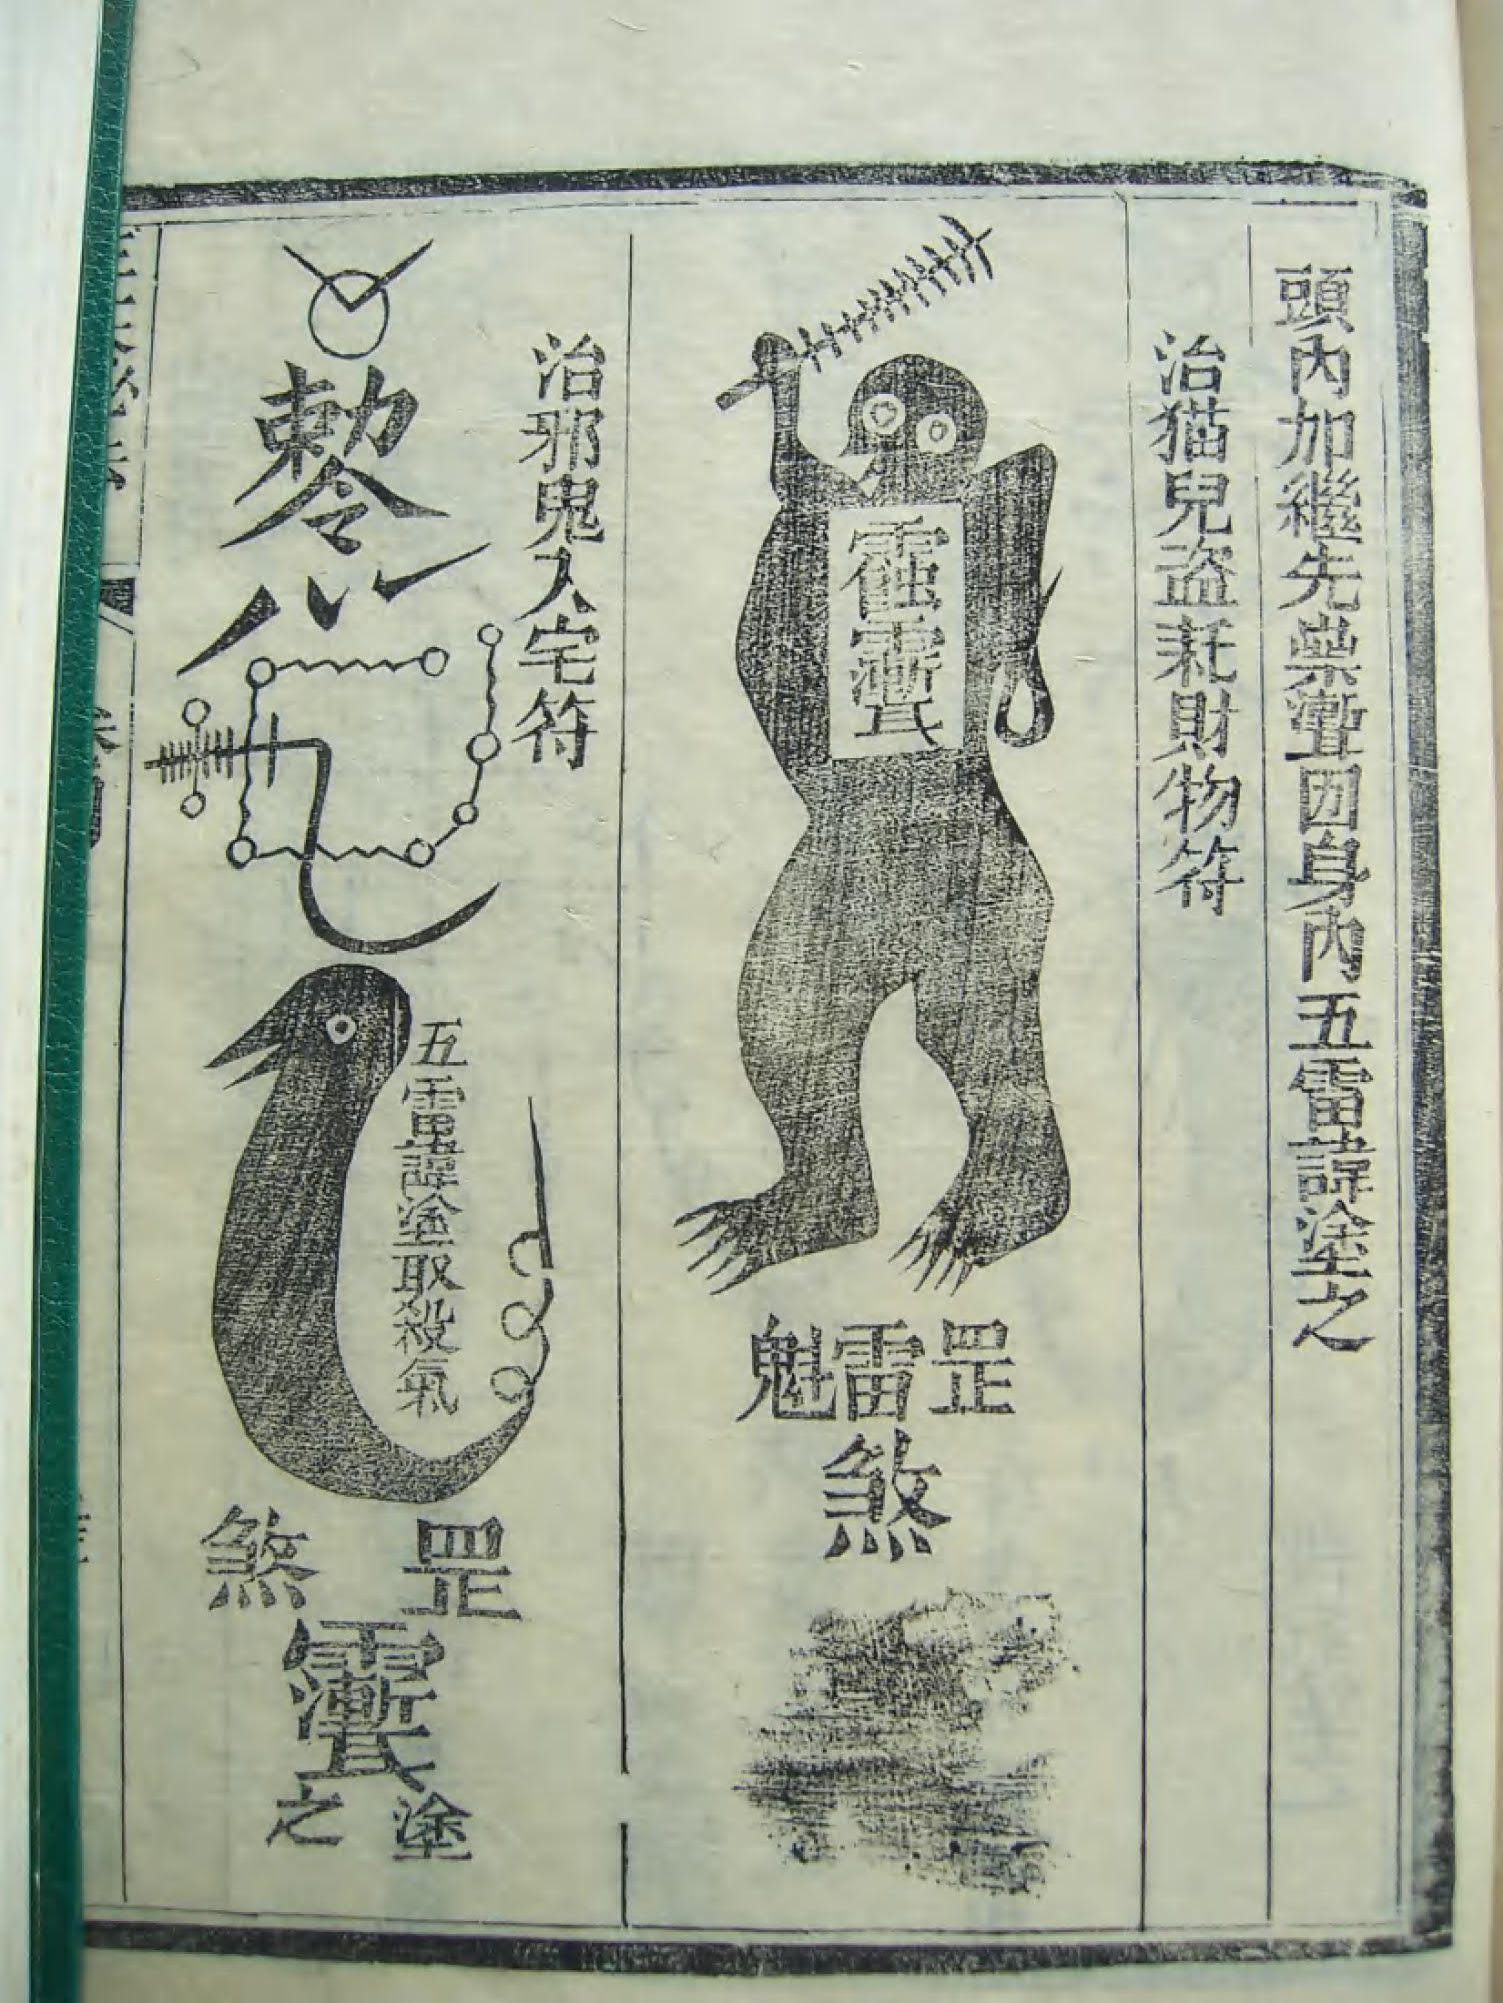 頭內加繼先藥𤅊因身內五雷諱塗之
治猫兒盜耗財物符
罡雷魁
煞
治邪鬼入宅符
敕令
五雷諱塗取殺氣
罡煞
塗之